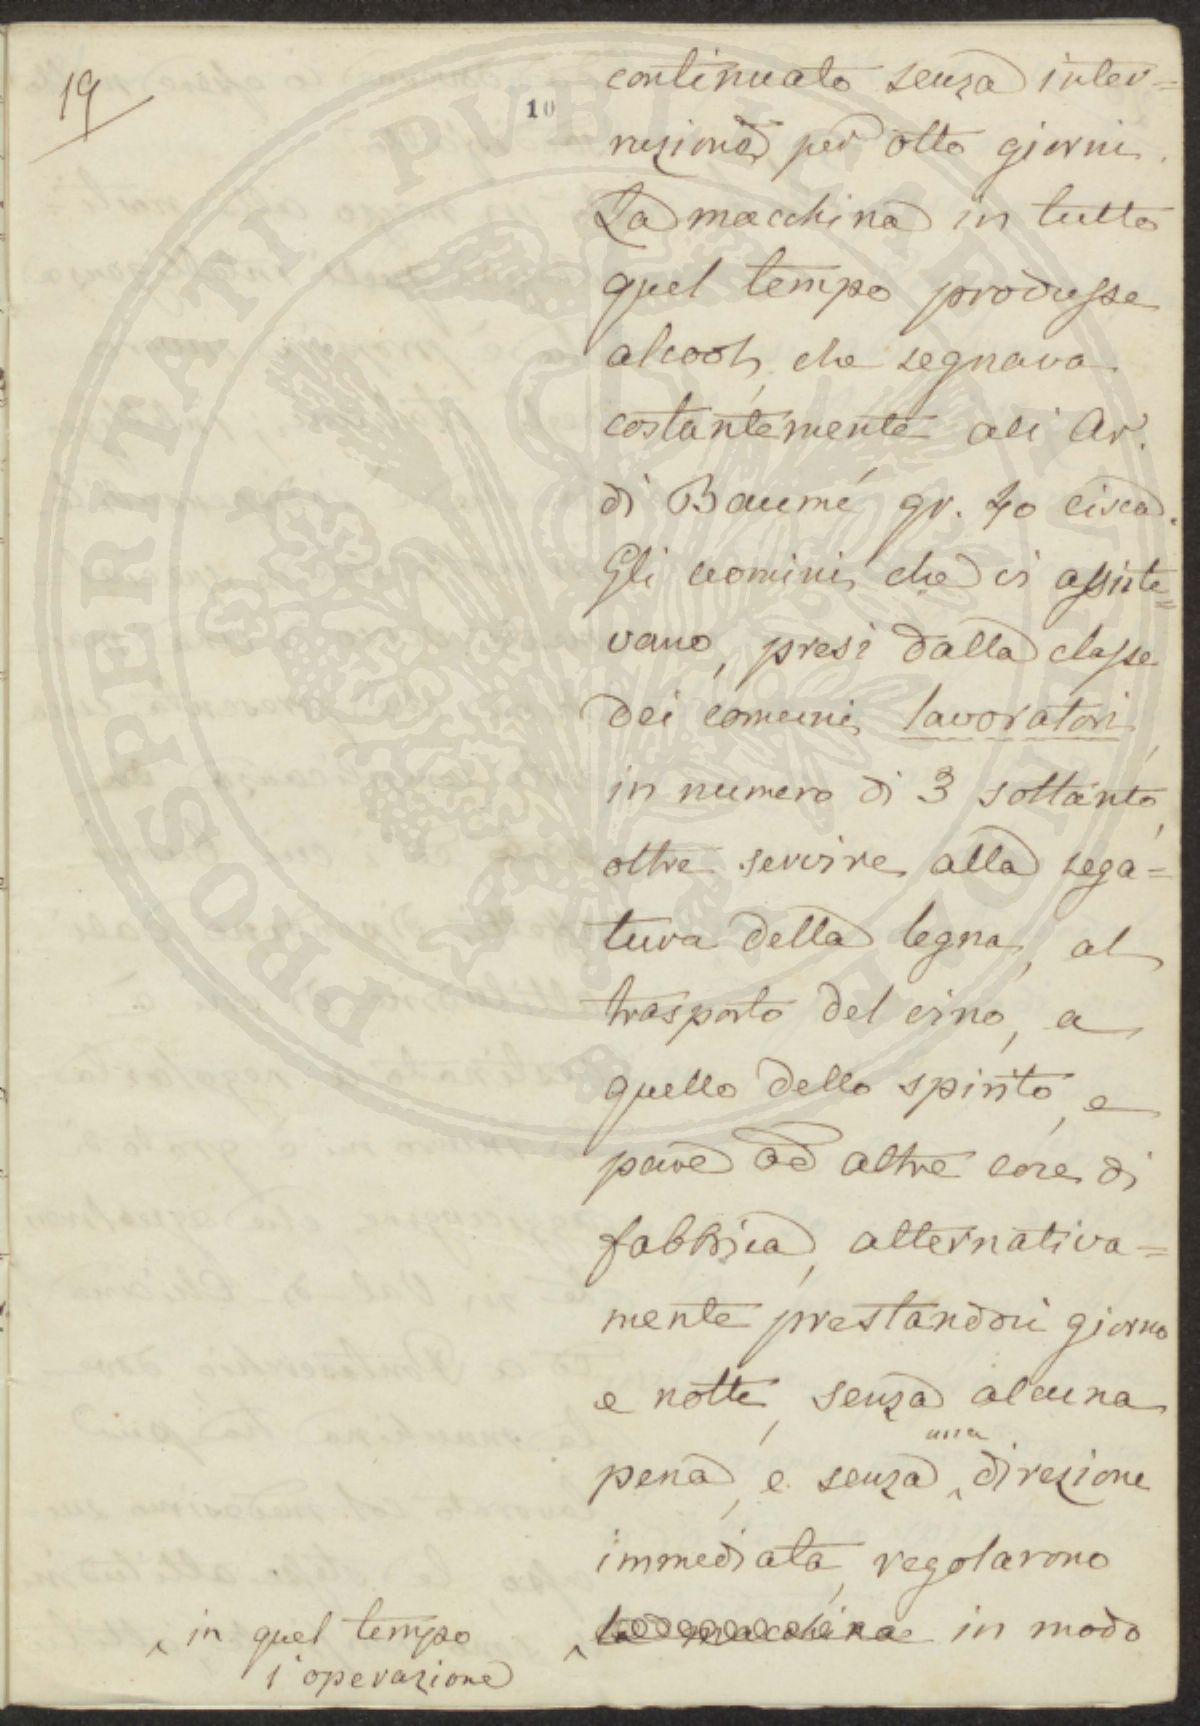 19
10
continuato senza inter=
ruzione per otto giorni.
La macchina in tutto
quel tempo produsse
alcool, che segnava
costantemente all' Ar.
di Baumé gr. 40 circa.
Gli uomini che vi assiste=
vano, presi dalla classe
dei comuni lavoratori,
in numero di 3 soltanto,
oltre servire alla sega=
tura della legna, al
trasporto del vino, a
quello dello spirito, e
pure ad altre cose di
fabbrica, alternativa=
mente prestandosi giorno
e notte, senza alcuna
pena, e senza ^ una direzione
immediata, regolarono
^ la macchina in modo
^ in quel tempo
l'operazione
PROSPERITATI PVBLICAE AVGENDAE